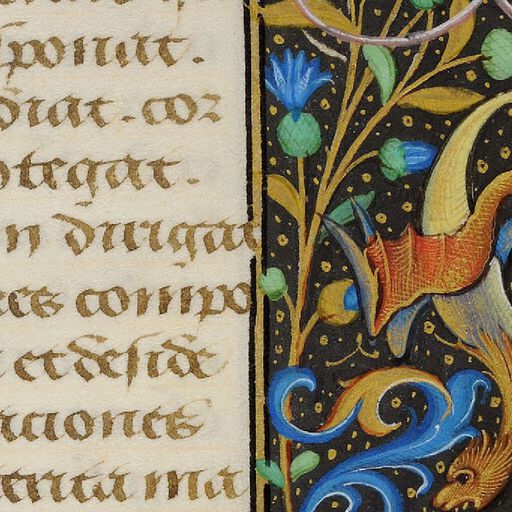 sponat.
diat. cor
otegat.
n dirigat
res compo
et deside
aciones
terita ma